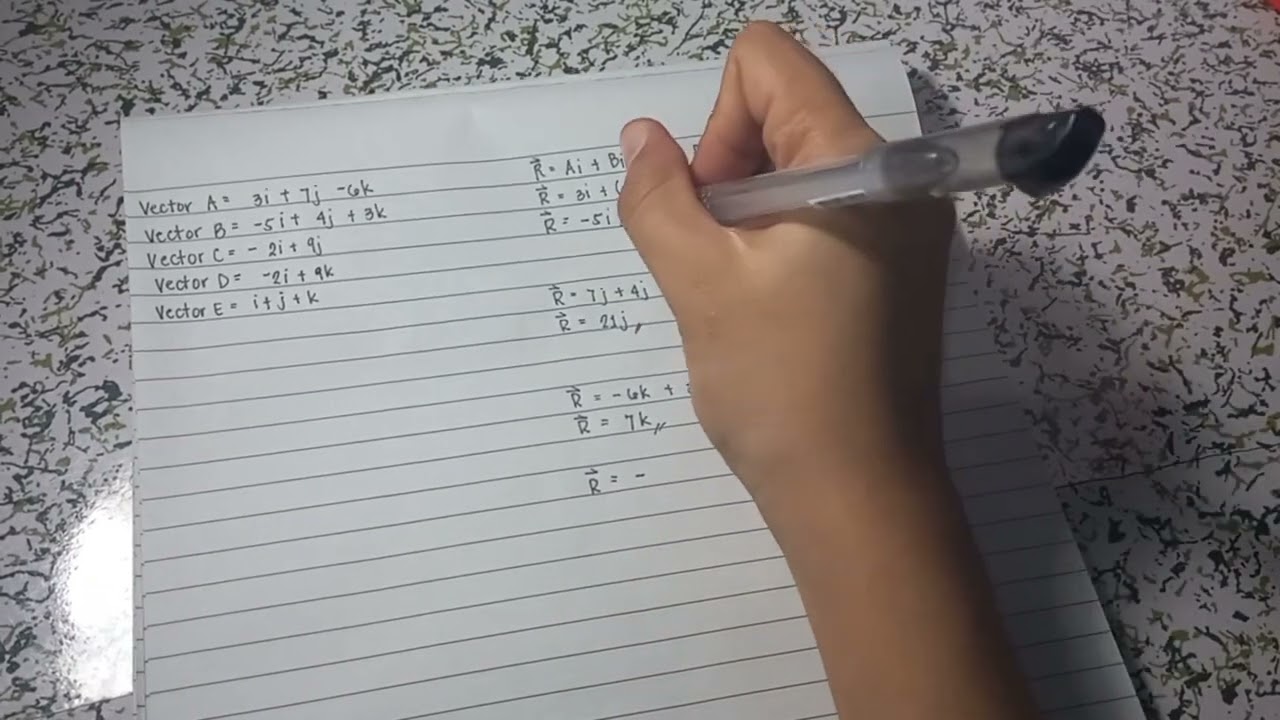 Vector A = 3i + 7j -6k
Vector B = -5i + 4j + 3k
Vector C = - 2i + 9j
Vector D = -2i + 9k
Vector E = i + j + k
R = Ai + Bi
R = 3i + (
R = -5i
R = 7j + 4j
R = 21j,,
R = -6k +
R = 7k,,
R = -